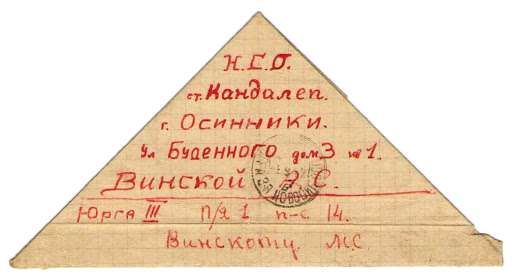 Н.С.О.
ст. Кандалеп.
г. Осинники.
ул Буденного дом 3 кв 1.
Винской С.
Юрга III п/я 1 п-с 14.
Винскому. М.С.